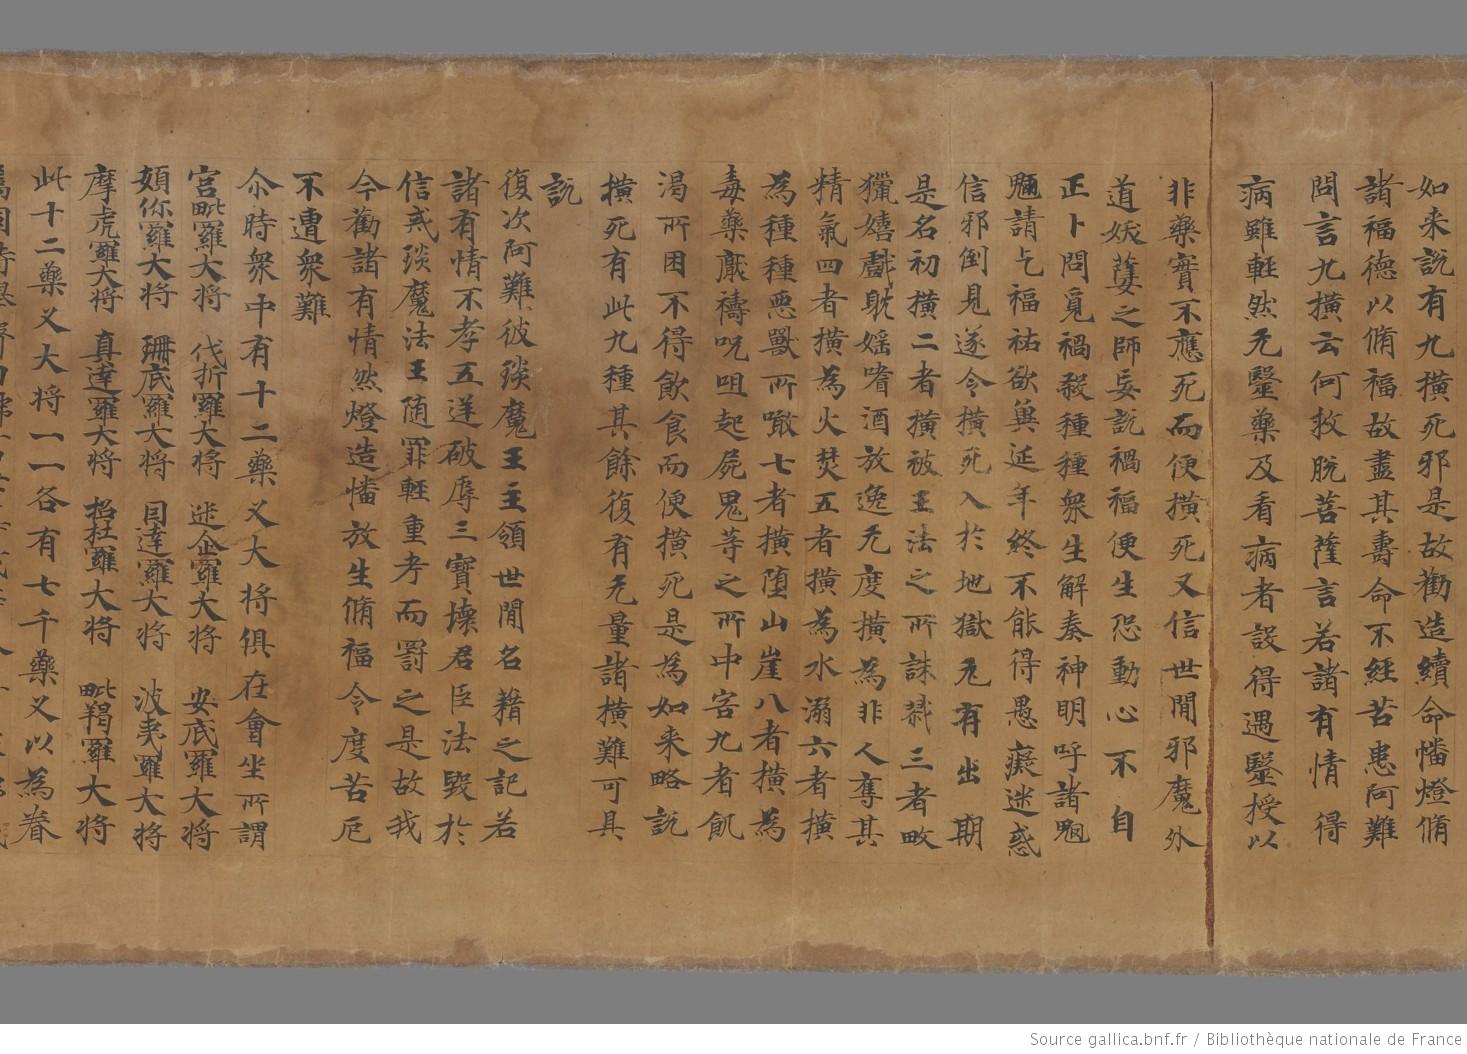 如来説有九横死邪是故勸造續命幡燈脩
諸福德以脩福故盡其壽命不經苦患阿難
問言九横云何救脱菩薩言若諸有情得
病雖軽然无毉藥及看病者設得遇毉授以
非藥實不應死而便横死又信世間邪魔外
道妖孽之師妄説禍福便生恐動心不自
正卜問覓禍殺種種衆生解奏神明呼諸魍
魎請乞福祐欲冀延年終不能得愚癡迷惑
信邪倒見遂令横死入於地獄无有出期
是名初横二者横被王法之所誅戮三者畋
獵嬉戲躭婬嗜酒放逸无度横為非人奪其
精氣四者横為火焚五者横為水溺六者横
為種種惡獸所噉七者横堕山崖八者横為
毒藥厭禱呪咀起屍鬼等之所中害九者飢
渴所困不得飲食而便横死是為如来略説
横死有此九種其餘復有无量諸横難可具
説
復次阿難彼琰魔王主領世間名籍之記若
諸有情不孝五逆破辱三寶壊君臣法毀於
信戒琰魔法王随罪軽重考而罰之是故我
今勸諸有情然燈造幡放生脩福令度苦厄
不遭衆難
尒時衆中有十二藥叉大将俱在會坐所謂
宫毗羅大将 伐折羅大将 迷企羅大将 安底羅大将
頞你羅大将 珊底羅大将 因達羅大将 波夷羅大将
摩虎羅大将 真達羅大将 招杜羅大将 毗羯羅大将
此十二藥叉大将一一各有七千藥叉以為眷
Source gallica.bnf.fr / Bibliothèque nationale de France